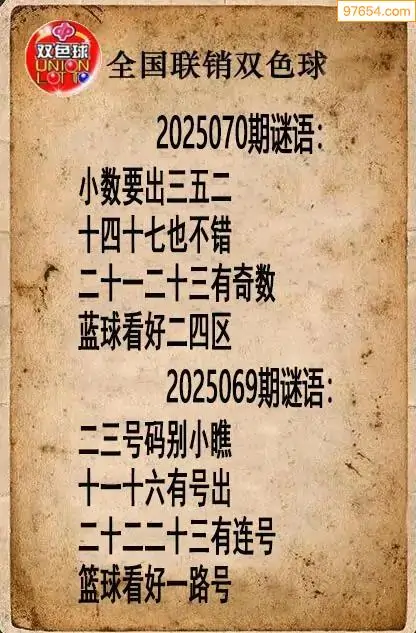 97654.com
双色球
UNION
LOTTO
全国联销双色球
2025070期谜语：
小数要出三五二
十四十七也不错
二十一二十三有奇数
蓝球看好二四区
2025069期谜语：
二三号码别小瞧
十一十六有号出
二十二二十三有连号
篮球看好一路号